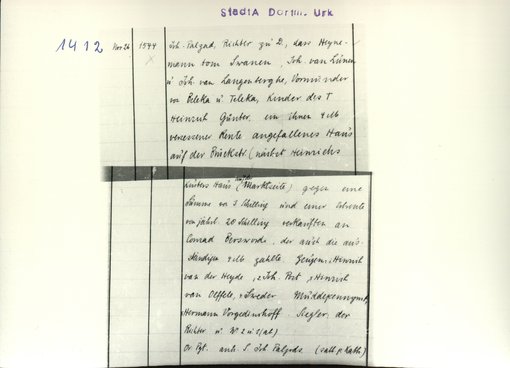 StadtA Dortm. Urk
1412 Nov. 26 1544 Joh. Palzad, Richter zu D., dass Heyne-
mann tom Swanen, Joh. van Lünen
u. Joh. van Langenberghe, Vormünder
von Beleka u. Teleka, Kinder des †
Heinrich Günter, ein ihnen
versessener Rente angefallenes Haus
auf der Brückstr. (nächst Heinrichs
Lubers Haus (Marktseite) gegen eine
Summe von 3 Schilling und einer
von jährl. 20 Schilling verkauften an
Conrad Berswordt, der auch die aus-
ständigen zahlte. Zeugen: Heinrich
van der Heyde, Joh. Post, Heinrich
van Oeffele, Sweder Müddepennynck,
Hermann Vorgedinkhoff. Siegler, der
Richter u.
Or. Pgt. anh. S. Joh.